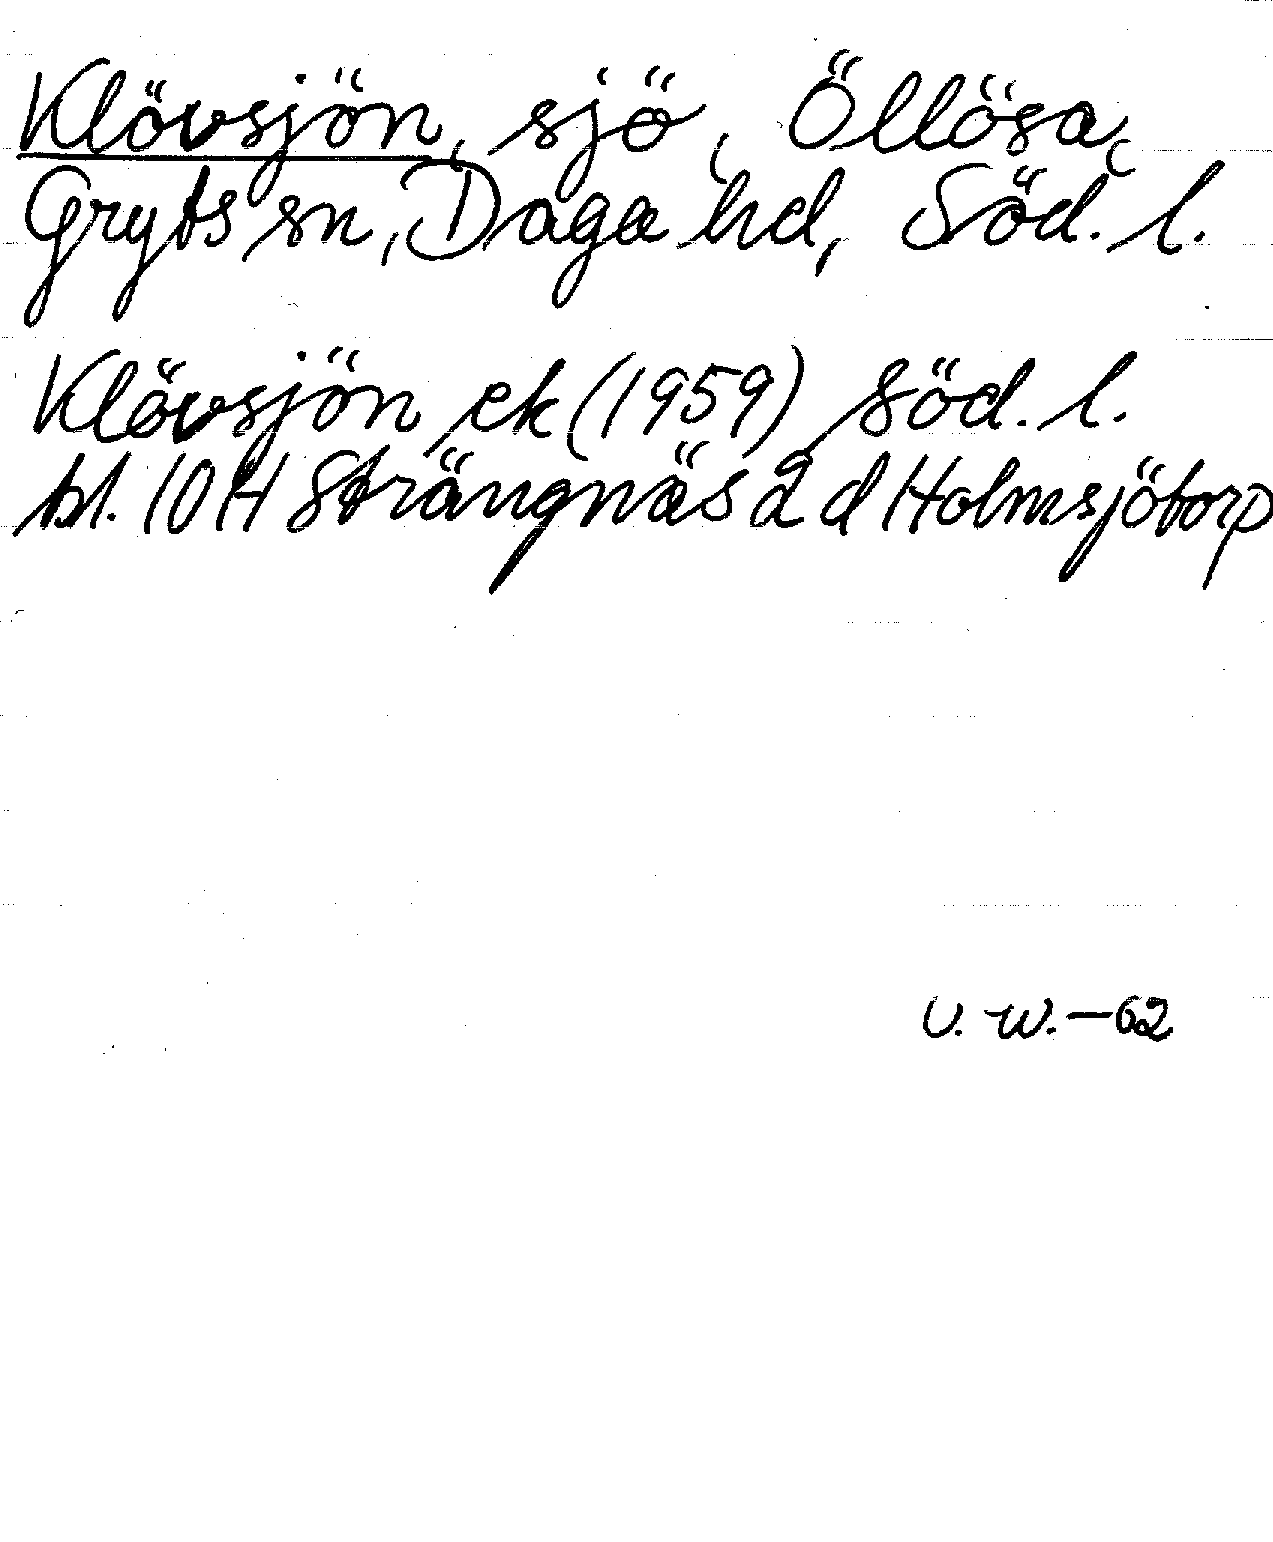 Klövsjön, sjö, Öllösa,
Gryts sn, Daga hd, Söd. l.
Klövsjön ek (1959) Söd. l.
bl. 10 H Strängnäs 2 d Holmsjötorp
U. W. – 62